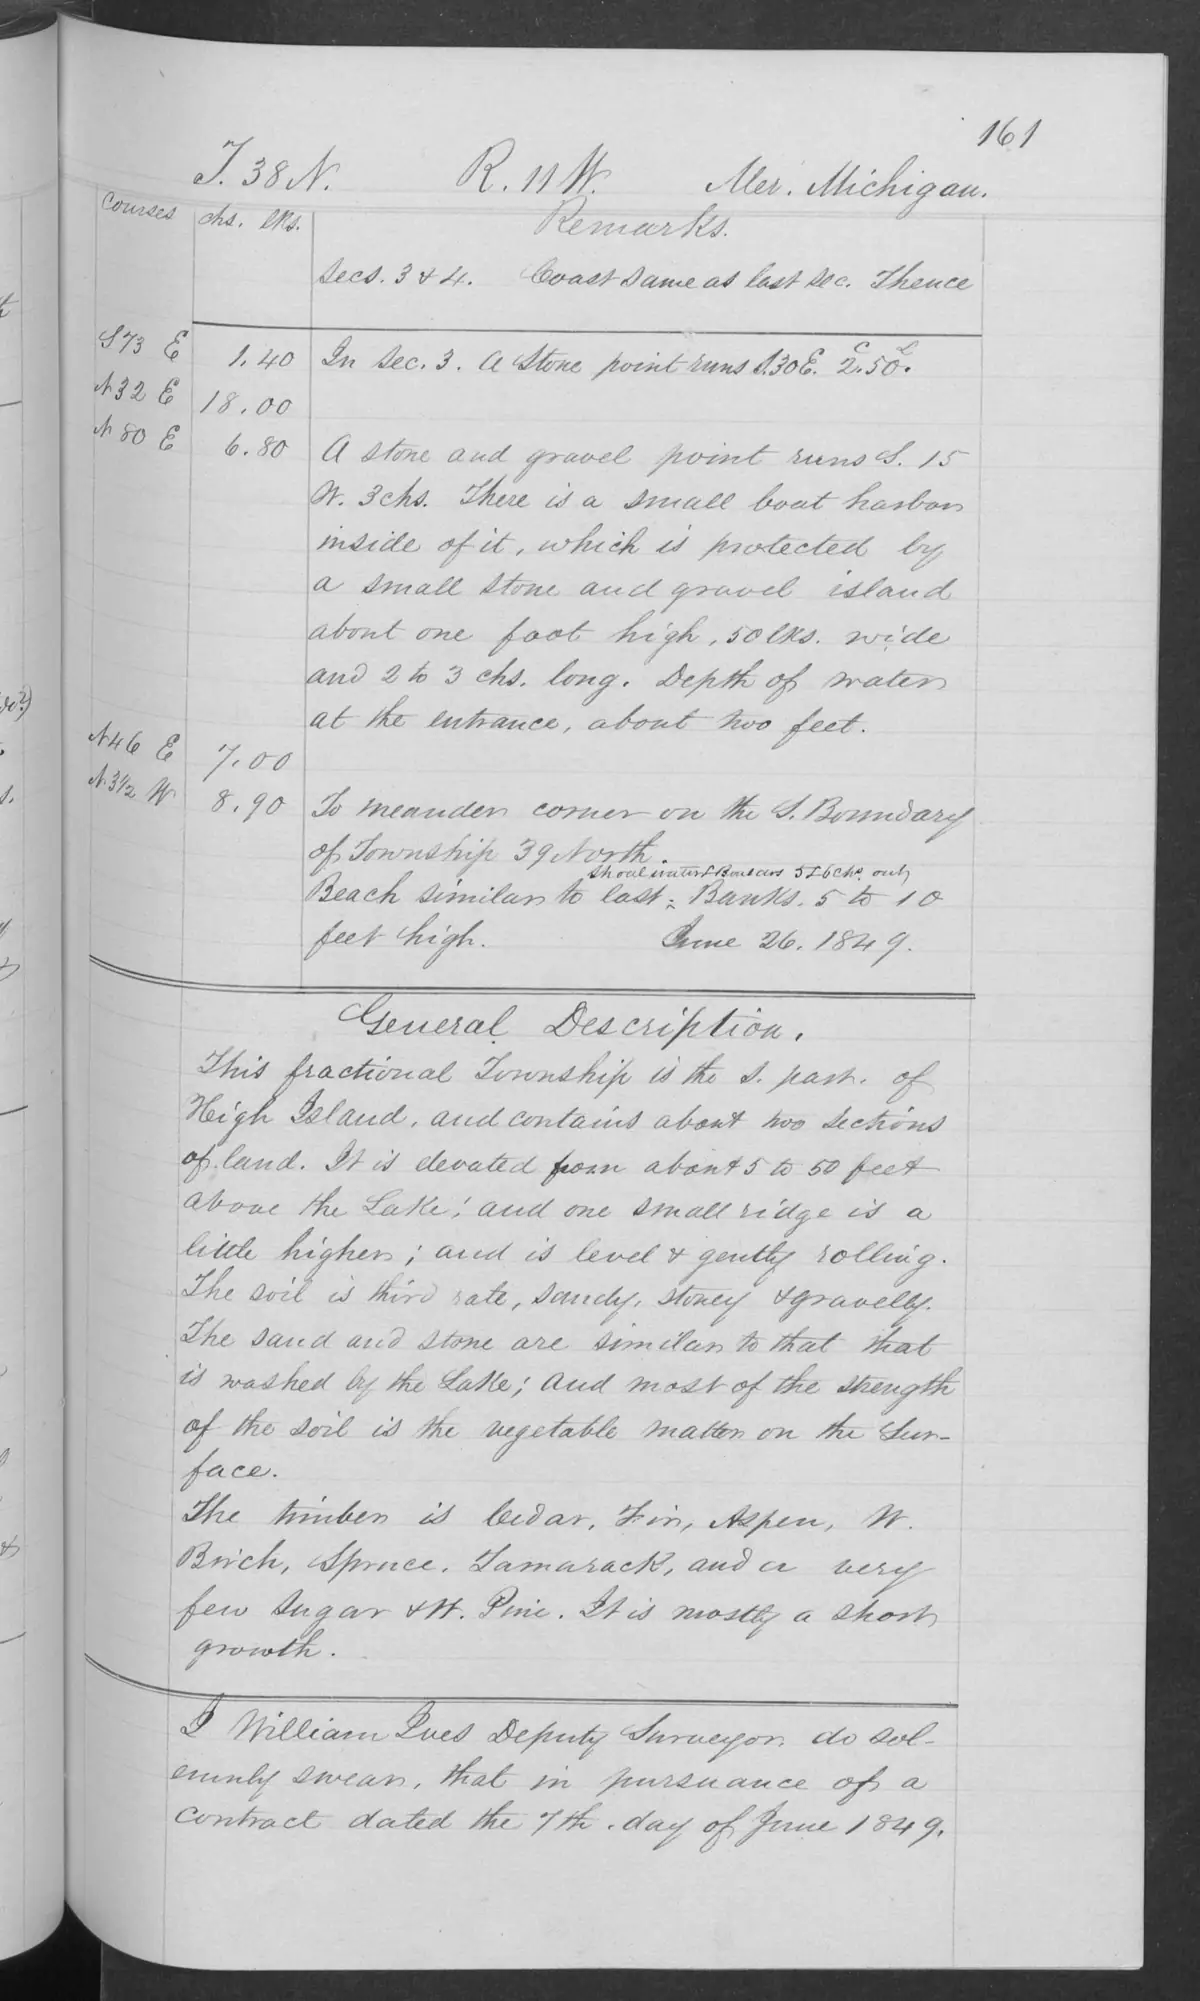 161
T. 38 N. R. 11 W. Mer. Michigan.
Courses chs. lks. Remarks.
Secs. 3 & 4. Coast same as last sec. Thence
S 73 E 1.40 In Sec. 3. A Stone point runs S.30E. 2.C 50.L
N 32 E 18.00
N 80 E 6.80 A stone and gravel point runs S. 15
W. 3 chs. There is a small boat harbor
inside of it, which is protected by
a small stone and gravel island
about one foot high, 50 lks. wide
and 2 to 3 chs. long. Depth of water
at the entrance, about two feet.
N 46 E 7.00
N. 3 1/2 W 8.90 To meander corner on the S. Boundary
of Township 39 North.
shoal water & Boulders 5 & 6 chs. out,
Beach similar to last; Banks. 5 to 10
feet high. June 26. 1849.
General Description.
This fractional Township is the S. part. of
High Island, and contains about two sections
of land. It is elevated from about 5 to 50 feet
above the Lake; and one small ridge is a
little higher; and is level & gently rolling.
The soil is third rate, sandy, stoney & gravelly.
The sand and stone are similar to that that
is washed by the Lake; and most of the strength
of the soil is the vegetable matter on the Sur-
face.
The timber is Cedar, Fir, Aspen, W.
Birch, Spruce, Tamarack, and a very
few Sugar & W. Pine. It is mostly a short
growth.
I William Ives Deputy Surveyor do sol-
emnly swear, that in pursuance of a
contract dated the 7th. day of June 1849.